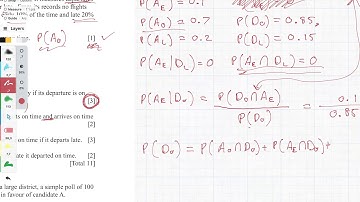 records no flights
of the time and late 20%
P(A₀) [1] ✓
y if its departure is on
[3]
ts on time and arrives on time
[2]
on time if it departs late. [3]
late it departed on time. [2]
[Total 11]
a large district, a sample poll of 100
in favour of candidate A.
Layers
P(A_E) = 0.1
P(A₀) = 0.7 P(D₀) = 0.85,
P(A_L) = 0.2 P(D_L) = 0.15
P(A_E|D_L) = 0 P(A_E ∩ D_L) = 0
P(A_E|D₀) = P(D₀ ∩ A_E) / P(D₀) = 0.1 / 0.85
P(D₀) = P(A₀ ∩ D₀) + P(A_E ∩ D₀) +